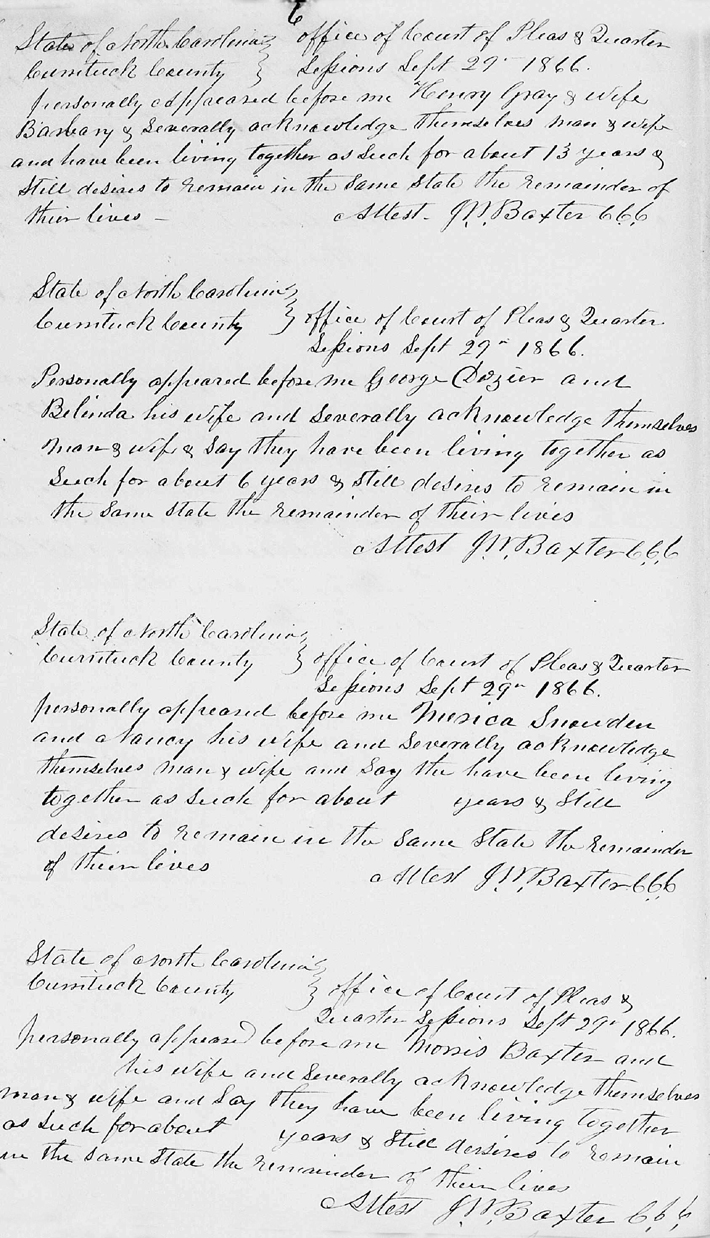 6
State of North Carolina } office of Court of Pleas & Quarter
Currituck County } Sessions Sept 29th 1866.
personally appeared before me Henry Gray & wife
Barbary & Severally acknowledge themselves man & wife
and have been living together as Such for about 13 years &
Still desires to remain in the Same State the remainder of
their lives – Attest. J.W. Baxter C.C.C
State of North Carolina }
Currituck County } office of Court of Pleas & Quarter
Sessions Sept 29th 1866.
Personally appeared before me George Dozier and
Belinda his wife and Severally acknowledge themselves
man & wife & Say they have been living together as
Such for about 6 years & Still desires to remain in
the Same State the remainder of their lives
Attest J.W. Baxter C.C.C
State of North Carolina }
Currituck County } office of Court of Pleas & Quarter
Sessions Sept 29th 1866.
personally appeared before me Merica Snowden
and Nancy his wife and Severally acknowledge
themselves man & wife and Say the have been living
together as Such for about years & Still
desires to remain in the Same State the Remainder
of their lives Attest J.W. Baxter C.C.C
State of North Carolina }
Currituck County } office of Court of Pleas &
Quarter Sessions Sept 29th 1866.
personally appeared before me Morris Baxter and
his wife and Severally acknowledge themselves
man & wife and Say they have been living together
as Such for about years & Still desires to remain
in the Same State the remainder of their lives
Attest J.W. Baxter C.C.C